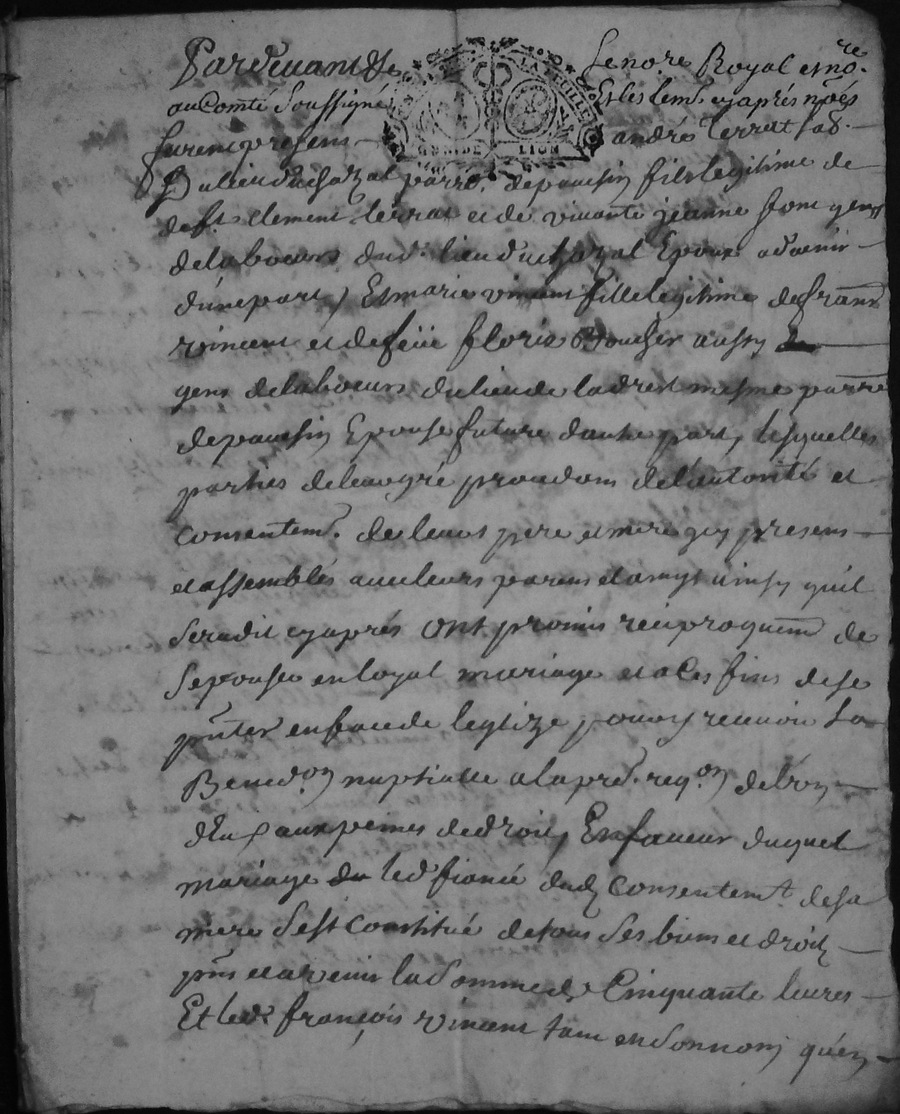 Pardevant Le nore Royal et no.re
au Comté Soussigné Et les tem. cy aprés nōés
furent presens andrés terrat lab.
du lieu du chazal parr. de pausin fils legitime de
deft. Clement terrat et de vivante jeanne font gens
delabours dud. lieu du chazal Epoux advenir
d'une part, Et marie vincent fille legitime de frann
vincent et de feüe floris Boucher aussy
gens delabours du lieu de ladrest mesme parre
de pausin Epouse future dautre part, lesquelles
parties de leur gré proudom de lautorité et
consentem.t de leurs pere et mere icy presens
et assemblés avec leurs parens et amys ainsy quil
sera dit cy aprés ont promis reciproquem de
Sepouser en loyal mariage et a ces fins de se
pnter en face de leglize pour y recevoir la
Bened.on nuptialle a la pre. req.on de lun
d'Eux aux peines de droit, En faveur duquel
mariage led fiancé du consentem.t de sa
mere s'est Constitué de tous ses biens et droits
pns et avenir la Somme de Cinquante livres
Et led. françois vincent tant en son nom qu'en
GNRLDE LION